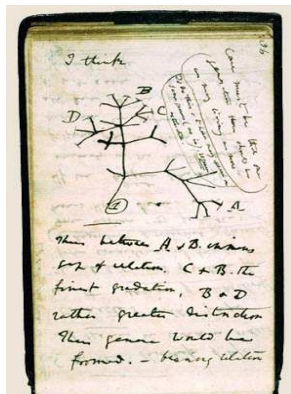 36
I think
B
D
C
A
1
Case must be that one
generation then should be
as many living as now
To do this & to have many species in
same genus (as is) requires
extinction.
Thus between A & B. immense
gap of relation. C & B. the
finest gradation, B & D
rather greater distinction
Thus genera would be
formed. — bearing relation